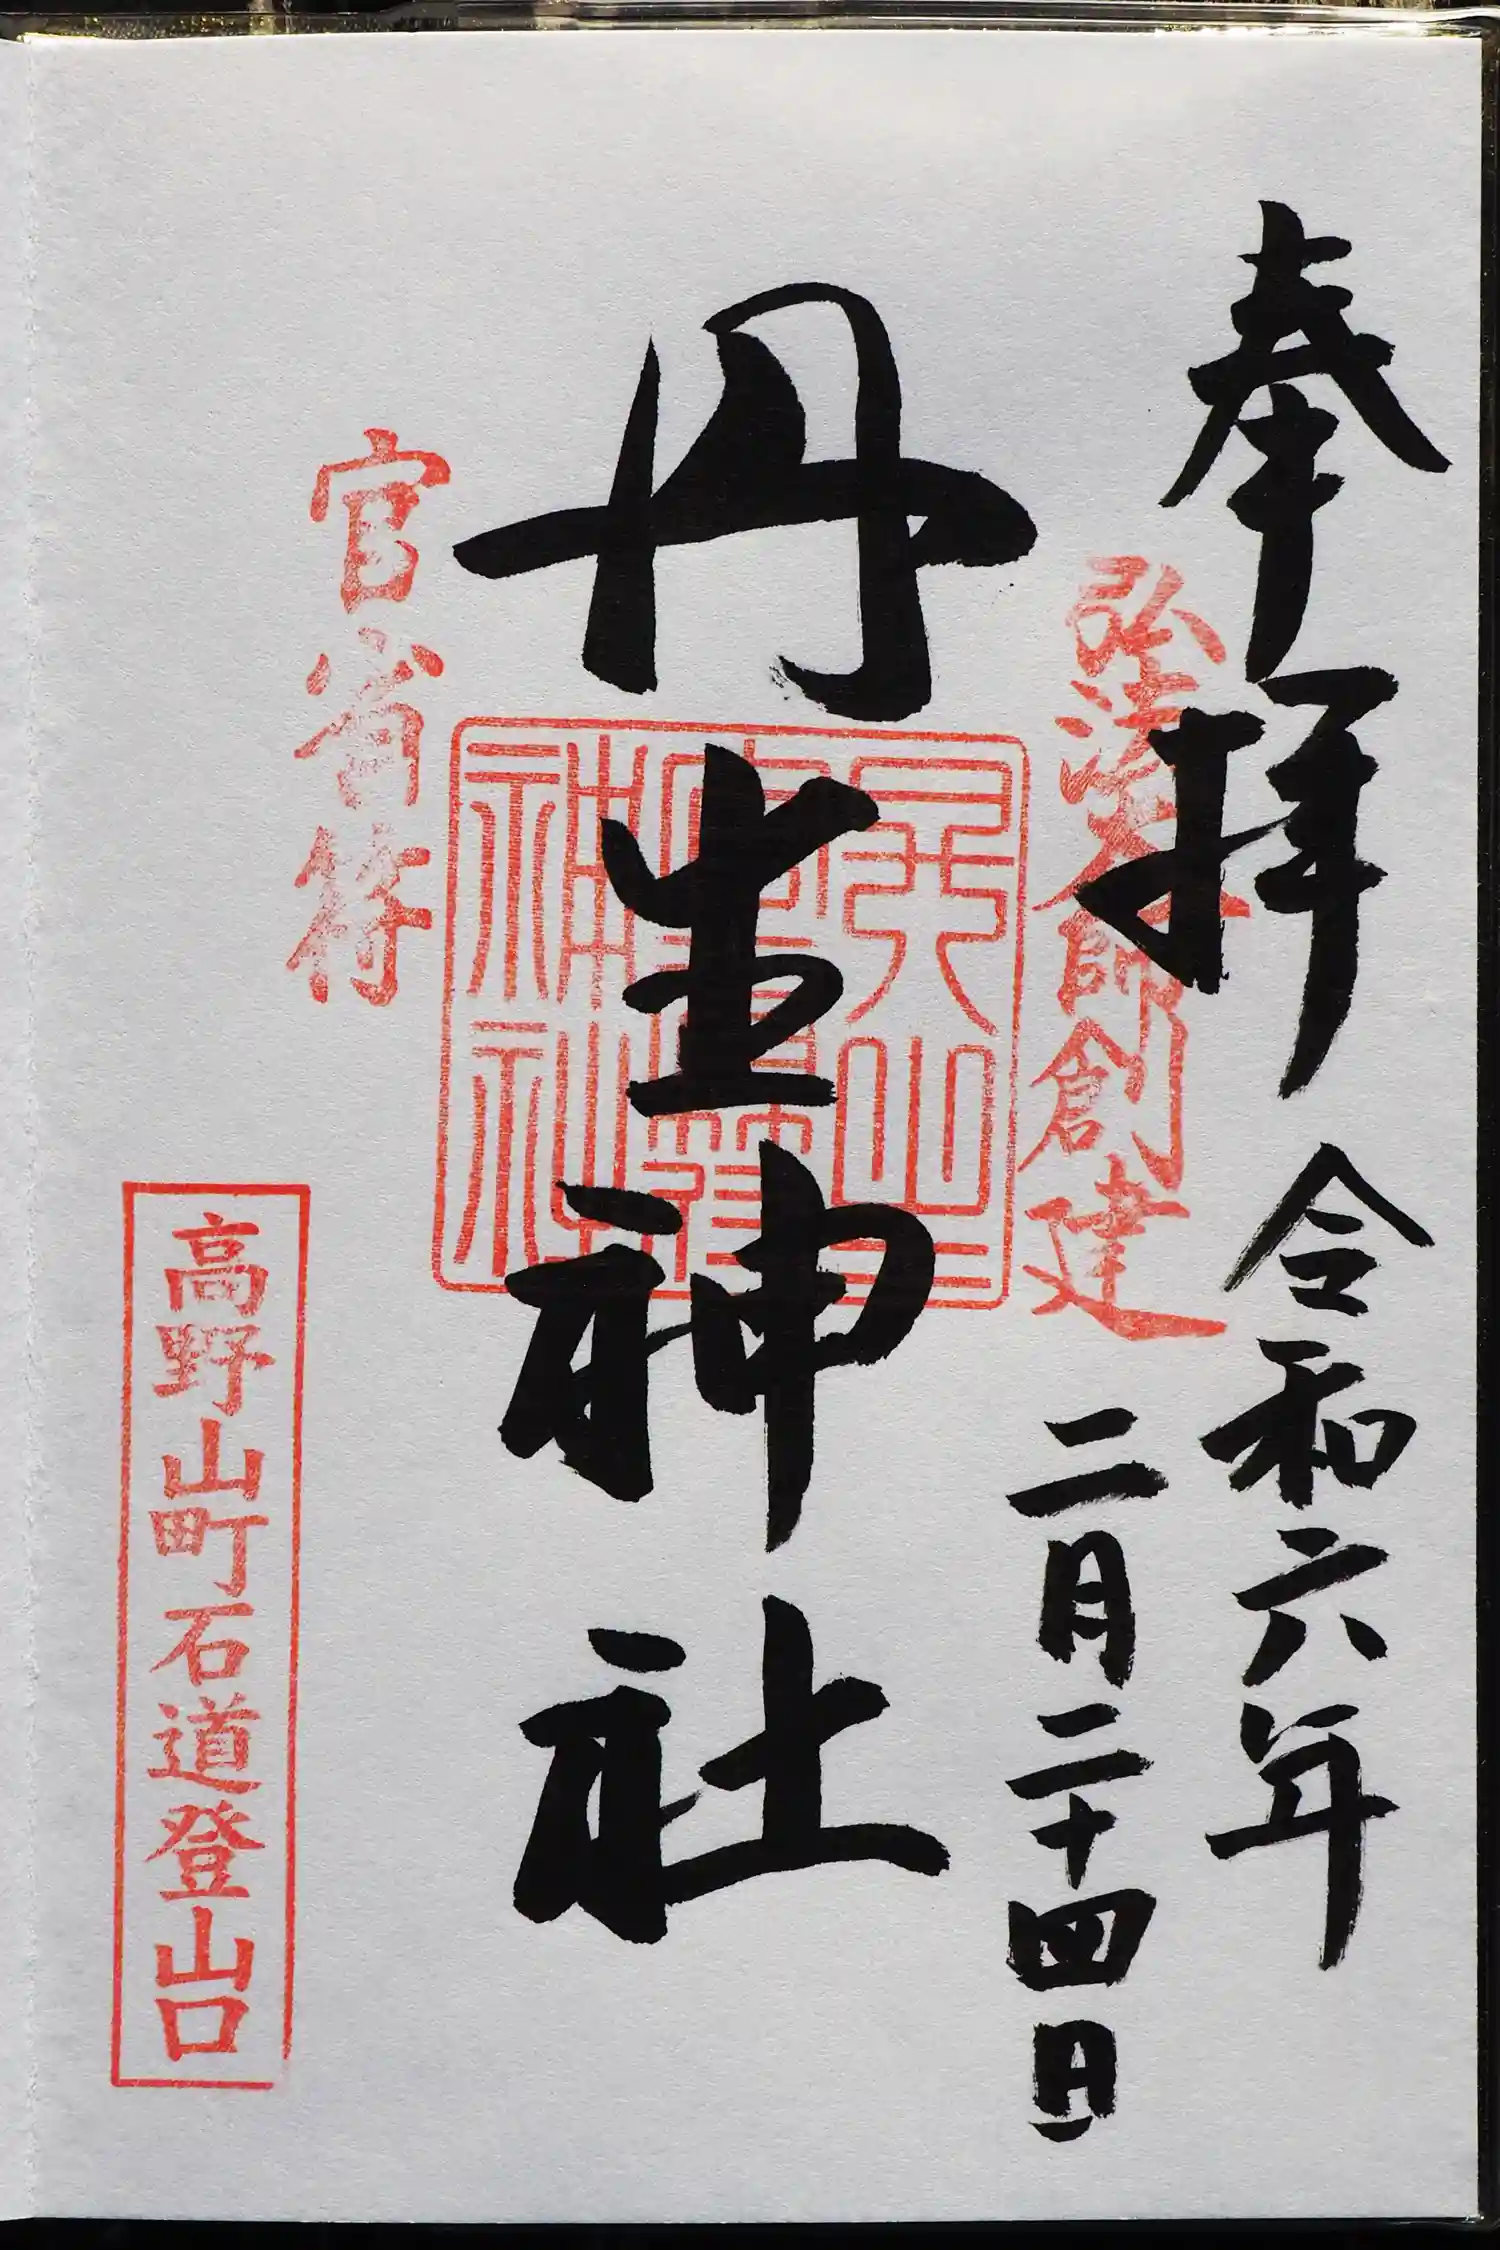 奉拝 令和六年
弘法大師創建
二月二十四日
丹生神社
神社
官省符
高野山町石道登山口